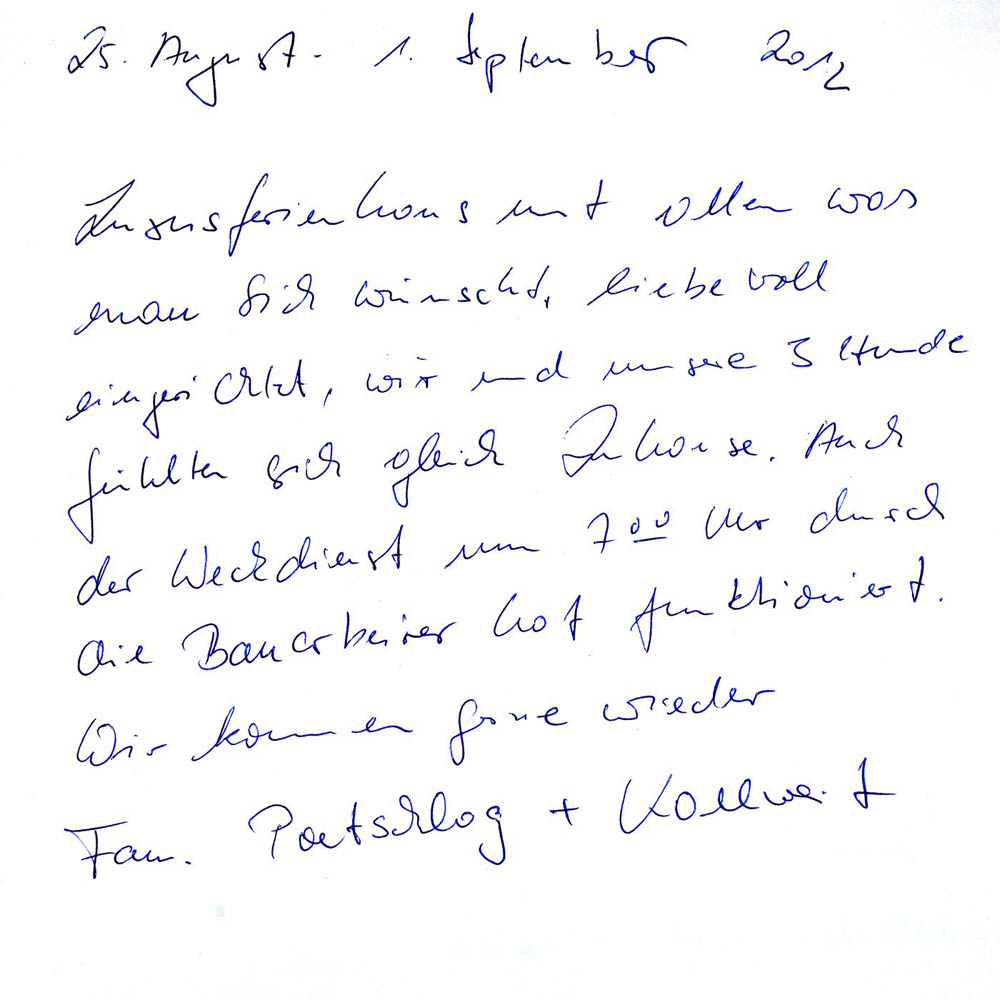 25. August - 1. September 2012
Luxusferienhaus mit allem was
man sich wünscht, liebevoll
eingerichtet, wir und unsere 3 Hunde
fühlten sich gleich Zuhause. Auch
der Weckdienst um 7 00 Uhr durch
die Bauarbeiter hat funktioniert.
Wir kommen gerne wieder
Fam. Poetschlag +